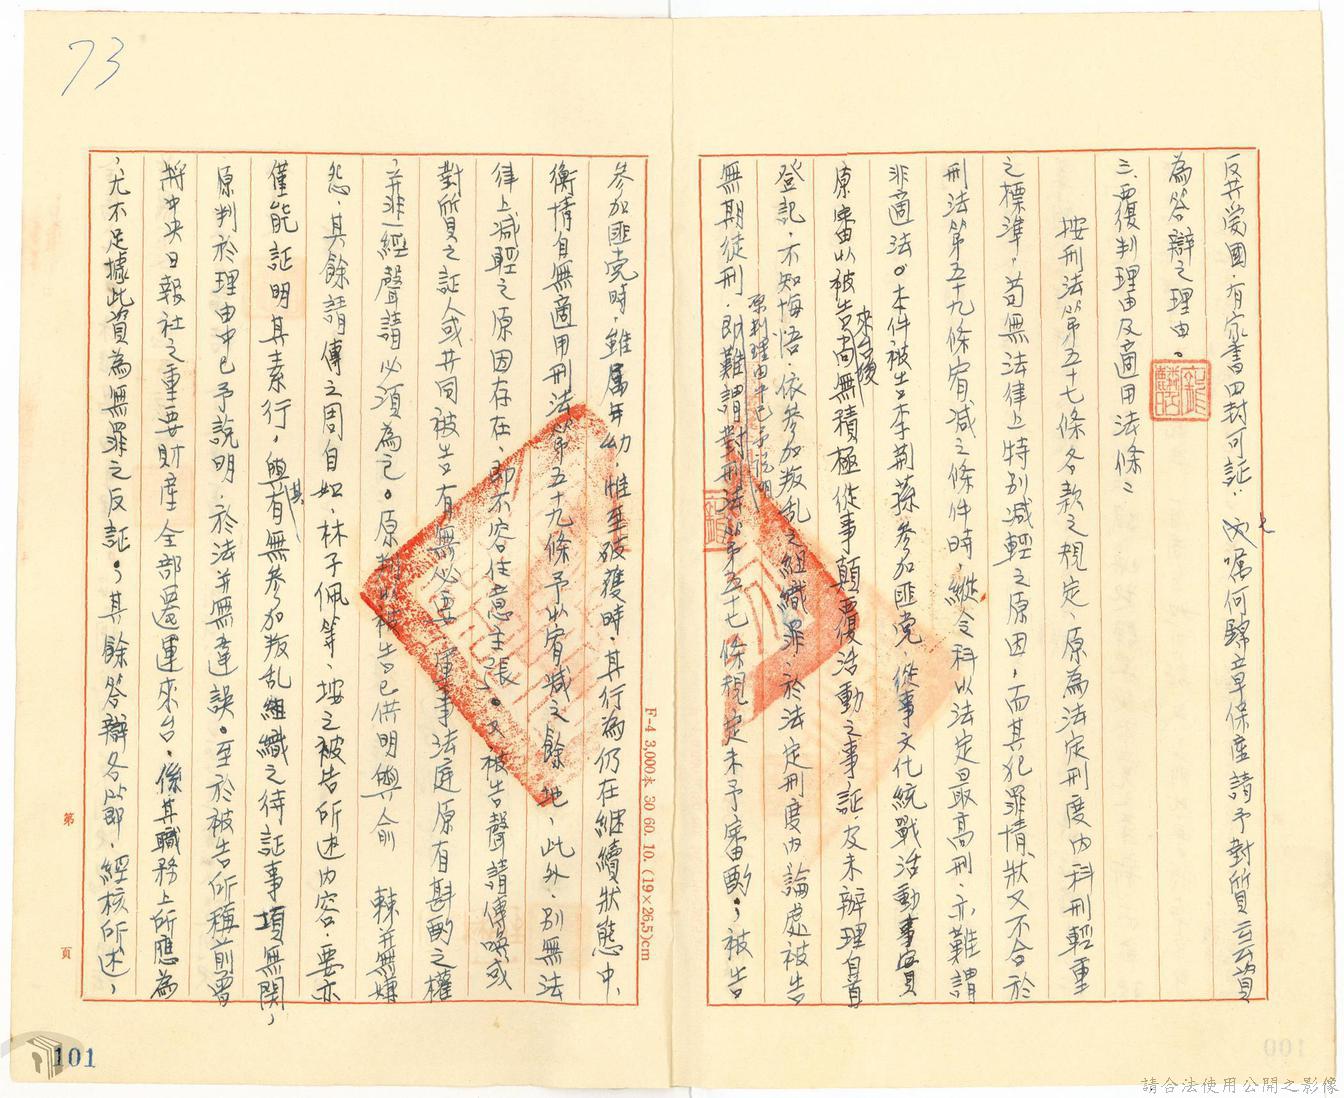 73
反共愛國，有家書四封可証，
為答辯之理由。
三、覆判理由及適用法條：
按刑法第五十七條各款之規定，原為法定刑度內科刑輕重
之標準，苟無法律上特別減輕之原因，而其犯罪情狀又不合於
刑法第五十九條宥減之條件時，縱令科以法定最高刑，亦難謂
非適法。本件被告李荊蓀參加匪党從事文化統戰活動事實
原審以被告來台後尚無積極從事顛覆活動之事証，及未辦理自首
登記，不知悔悟，依參加叛乱之組織罪，於法定刑度內論處被告
無期徒刑，原判理由中已予說明即難謂對刑法第五十七條規定未予審酌。被告
參加匪党時，雖属年幼，惟至破獲時，其行為仍在継續狀態中，
衡情自無適用刑法第五十九條予以宥減之餘地，此外，別無法
律上減輕之原因存在，即不容任意主張。又被告聲請傳喚或
對質之証人或共同被告有無必要，軍事法庭原有斟酌之權
，并非一經聲請必須為之。原判以被告已供明與俞棘并無嫌
怨，其餘請傳之周自如、林子佩等，按之被告所述內容，要亦
僅能証明其素行，與其有無參加叛乱組織之待証事項無関，
原判於理由中已予說明，於法并無違誤。至於被告所稱前曾
將中央日報社之重要財產全部遷運來台，係其職務上所應為
，尤不足據此資為無罪之反証。其餘答辯各節，經核所述，
F-4 3,000本 50 60. 10. (19×26.5)cm
第 頁
101
100
請合法使用公開之影像